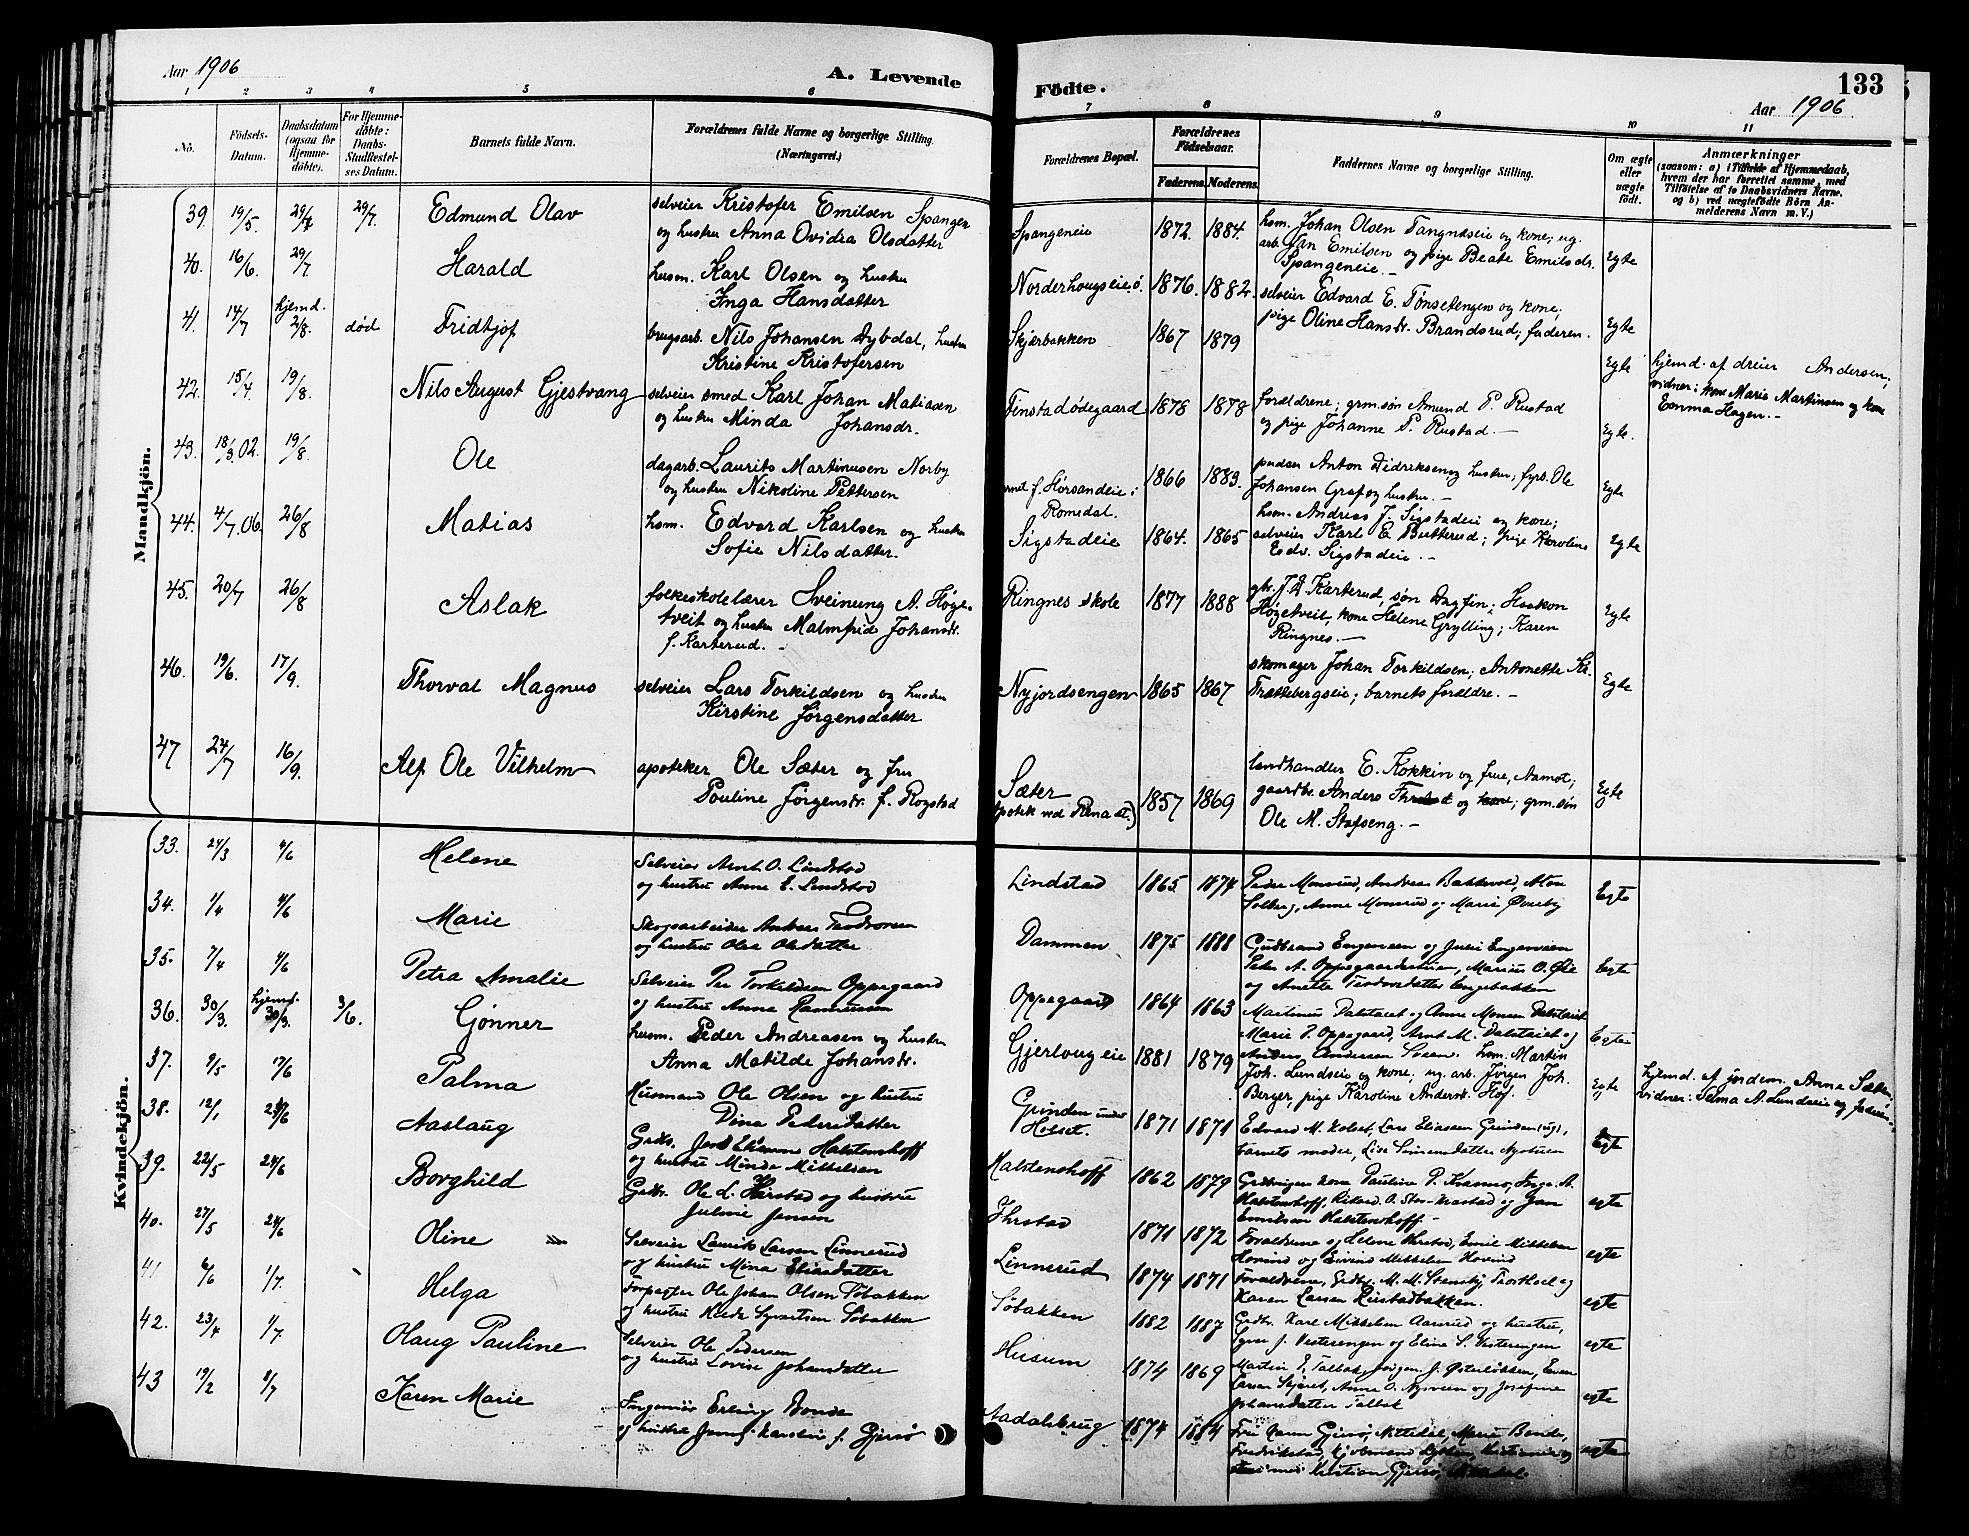 Aar 1906
A. Levende
Fødte.
133
Aar 1906
1 2 3 4 5 6 7 8 9 10 11
No.
Fødsels-
Datum.
Daabsdatum
(ogsaa for
Hjemme-
døbte).
For Hjemme-
døbte:
Daabs-
Stadfæstel-
ses Datum.
Barnets fulde Navn.
Forældrenes fulde Navne og borgerlige Stilling.
(Næringsvei.)
Forældrenes Bopæl.
Forældrenes
Fødselsaar.
Faderens. Moderens.
Faddernes Navne og borgerlige Stilling.
Om ægte
eller
uægte
født.
Anmærkninger
(saasom: a) i Tilfælde af Hjemmedaab,
hvem der har forrettet samme, med
Tilføielse af to Daabsvidners Navne.
og b) ved uægtefødte Børn An-
melderens Navn m. V.)
Mandkjön.
39. 19/5. 29/7 29/7. Edmund Olav
selveier Kristofer Emilsen Spangen
og hustru Anna Ovidra Olsdatter
Spangeneie 1872. 1884.
hsm. Johan Olsen Tangnæseie og kone; ug.
arb. Jan Emilsen og pige Beate Emilsdr.
Spangeneie. — Egte
40. 16/6. 29/7 Harald
husm. Karl Olsen og hustru
Inga Hansdatter
Norderhougseie ø. 1876. 1882.
selveier Edvard E. Tønsetengen og kone;
pige Oline Hansdr. Brandsrud; faderen. Egte
41. 14/7 hjemd. 2/8. død Fridtjof
brugsarb. Nils Johansen Dybdal, hustru
Kristine Kristofersen
Skjærbakken 1867 1879 Egte
hjemd. af dreier Andersen;
vidner: kone Marie Martinsen og kone
Emma Hagen. —
42. 15/4. 19/8. Nils August Gjestvang
selveier smed Karl Johan Matiasen
og hustru Minda Johansdr.
Finstadødegaard 1878 1878
forældrene; grm.søn Amund P. Rustad
og pige Johanne P. Rustad. — Egte.
43. 18/3.02. 19/8. Ole
dagarb. Laurits Martinusen Norby
og hustru Nikoline Pettersen
f. Hørsandeie i
Romedal. 1866 1883.
pudser Anton Didriksen og hustru; fyrb. Ole
Johansen Graf og hustru. — Egte
44. 4/7.06. 26/8 Matias
hsm. Edvard Karlsen og hustru
Sofie Nilsdatter.
Sigstadeie 1864. 1865
hsm. Andreas J. Sigstadeie og kone;
selveier Karl E. Butterud; pige Karoline
Edv. Sigstadeie. — Egte
45. 20/7 26/8 Aslak
folkeskolelærer Sveinung A. Høge-
tveit og hustru Malmfrid Johansdr.
f. Karterud. —
Ringnes skole 1877 1888
Karterud, søn Dagfin; Haakon
Høgetveit, kone Helene Grylling; Karen
Ringnes. — Egte
46. 19/6. 17/9. Thorval Magnus
selveier Lars Torkildsen og hustru
Kirstine Jørgensdatter
Nyjordsengen 1865 1867
skomager Johan Torkildsen; Antonette
Trættebergseie; barnets forældre. — Egte
47 24/7 16/9. Alf Ole Vilhelm
apoteker Ole Sæter og fru
Pauline Jørgensdr. f. Rogstad
Sæter
Apotek ved Rena st.) 1857 1869
landhandler E. Kokkin og frue, Aamot;
gaardbr. Anders og kone; grm.søn
Ole M. Stafseng. — Egte
Kvindekjön.
33. 24/3 4/6 Helene
Selveier Arnt O. Lindstad
og hustru Anne E. Lindstad
Lindstad 1865 1874
Peder Monsrud, Andreas Bakkevold,
Solberg, Anne Monsrud og Marie Øveraby Egte
34. 1/4 4/6 Marie
Skogsarbeider Anders Teodorsen
og hustru Olea Olsdatter
Dammen 1875 1888
Gudbrand Engensen og Julie Engensen Egte
35. 7/4 4/6 Petra Amalie
Selveier Per Torkildsen Oppegaard
og hustru Anne Rasmussen
Oppegaard 1864 1863
Peter A. Oppegaardseie, Marius O. Øie
og Anette Teodorsdatter Engebakken Egte
36. 30/3. hjemd. 30/3. 3/6. Gönner
husm. Peder Andreasen og hustru
Anna Matilde Johansdr.
Gjerlougeie 1881 1879
hsm. Martin
Joh. Lundseie og kone; ug. arb. Jørgen Joh.
Berger, pige Karoline Andersdr. Hof. Egte
hjemd. af jordem. Anna Sæter
vidner: Selma A. Lundseie og faderen
37. 9/5 17/6 Palma
Husmand Ole Olsen og hustru
Dina Pedersdatter
Grinden under
Holset. 1871 1871
Edvard M. Holset, Lars Eliasen Grinden (ug),
barnets moder, Lise Simensdatter Nystuen Egte
38. 12/1 24/6 Aaslaug
Gaardbr. Halstenshoff
og hustru Minda Mikkelsen
Halstenshoff 1862 1879
Emilsen Halstenshoff. — egte
39. 22/5 24/6 Borghild
Gaardbr. Ole L. Hirstad og hustru
Juline Jensen
Ihrstad 1871 1872
Forældrene og Helene Ihrstad, Emil Mikkelsen
Hovind og Eivind Mikkelsen Hovind egte
40. 27/5 24/6 Oline
Selveier Laurits Larsen Linnerud
og hustru Mina Eliasdatter
Linnerud 1874 1871
Forældrene, Gaardbr. M. M. Stensby,
Karen Larsen Rustadbakken. egte
41 6/6 1/7. Helga
Forpagter Ole Johan Olsen Søbakken
og hustru Søbakken
Søbakken 1882 1887
Gaardbr. Karl Mikkelsen Aasrud og hustru,
Syver J. Vesterengen og Eline S. Vesterengen egte
42. 23/4 1/7. Olaug Pauline
Selveier Ole Pedersen
og hustru Lovise Johansdatter
Husum 1874 1869
Martin P. Talbak, Jørgen J. Østerløkken, Even
Larsen Skjæret, Anne O. Nysveen og Josefine
Johansdatter Talbak egte
43 19/2 8/7 Karen Marie
Ingeniør Erling Bonde
og hustru f. Gjersø
Aadalsbrug 1874 1884
Fru Karen Gjersø, Nittedal, Marie Bonde,
Fredrikstad,
Kristian Gjersø, egte